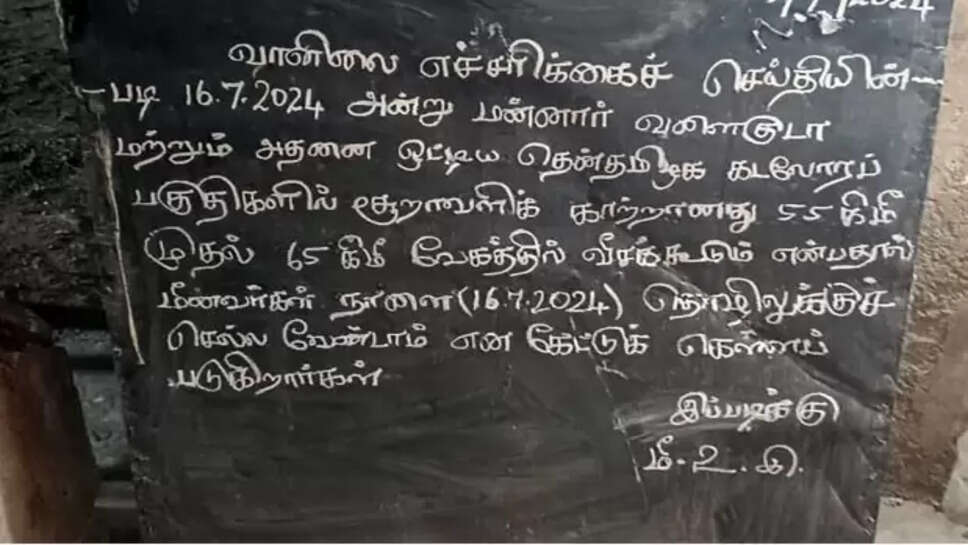 வானிலை எச்சரிக்கைச் செய்தியின்-
-படி 16.7.2024 அன்று மன்னார் வளைகுடா
மற்றும் அதனை ஒட்டிய தென்தமிழக கடலோரப்
பகுதிகளில் சூறாவளிக் காற்றானது 55 கிமீ
முதல் 65 கிமீ வேகத்தில் வீசக்கூடும் என்பதால்
மீனவர்கள் நாளை (16.7.2024) தொழிலுக்குச்
செல்ல வேண்டாம் என கேட்டுக் கொள்ளப்
படுகிறார்கள்
இப்படிக்கு
மீ.உ.இ.